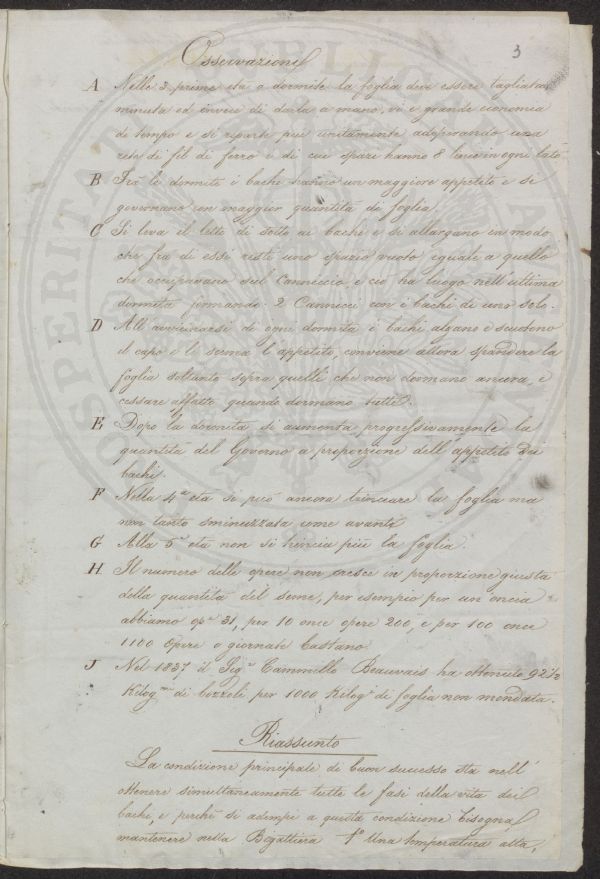 3
Osservazioni
A Nelle 3 prime età o dormite la foglia deve essere tagliata
minuta ed invece di darla a mano, vi è grande economia
di tempo e si riparte più unitamente adoperando una
rete di fil di ferro i di cui spazi hanno 8 linee in ogni lato
B Frà le dormite i bachi hanno un maggiore appetito e si
governano con maggior quantità di foglia
C Si leva il letto di sotto ai bachi e si allargano in modo
che frà di essi resti uno spazio vuoto eguale a quello
che occupavano sul Canniccio, e ciò ha luogo nell'ultima
dormita formando 2 Cannicci con i bachi di uno solo.
D All'avvicinarsi di ogni dormita i bachi alzano e scuotono
il capo e li scema l'appetito, conviene allora spandere la
foglia soltanto sopra quelli che non dormano ancora, e
cessare affatto quando dormano tutti.
E Dopo la dormita si aumenta progressivamente la
quantità del Governo a proporzione dell'appetito dei
bachi.
F Nella 4ª età si può ancora trinciare la foglia ma
non tanto sminuzzata come avanti
G Alla 5ª età non si trincia più la foglia.
H Il numero delle opere non cresce in proporzione giusta
della quantità del seme, per esempio per un'oncia
abbiamo opᵉ 31, per 10 once opere 200, e per 100 once
1100 Opere o giornate bastano
J Nel 1837 il Sigʳ Cammillo Beauvais ha ottenuto 92 ½
Kilogᵐⁱ di bozzoli per 1000 Kilogⁱ di foglia non mondata.
Riassunto
La condizione principale di buon successo sta nell'
ottenere simultaneamente tutte le fasi della vita dei
bachi, e perchè si adempi a questa condizione bisogna
mantenere nella Bigattiera 1º Una temperatura alta,